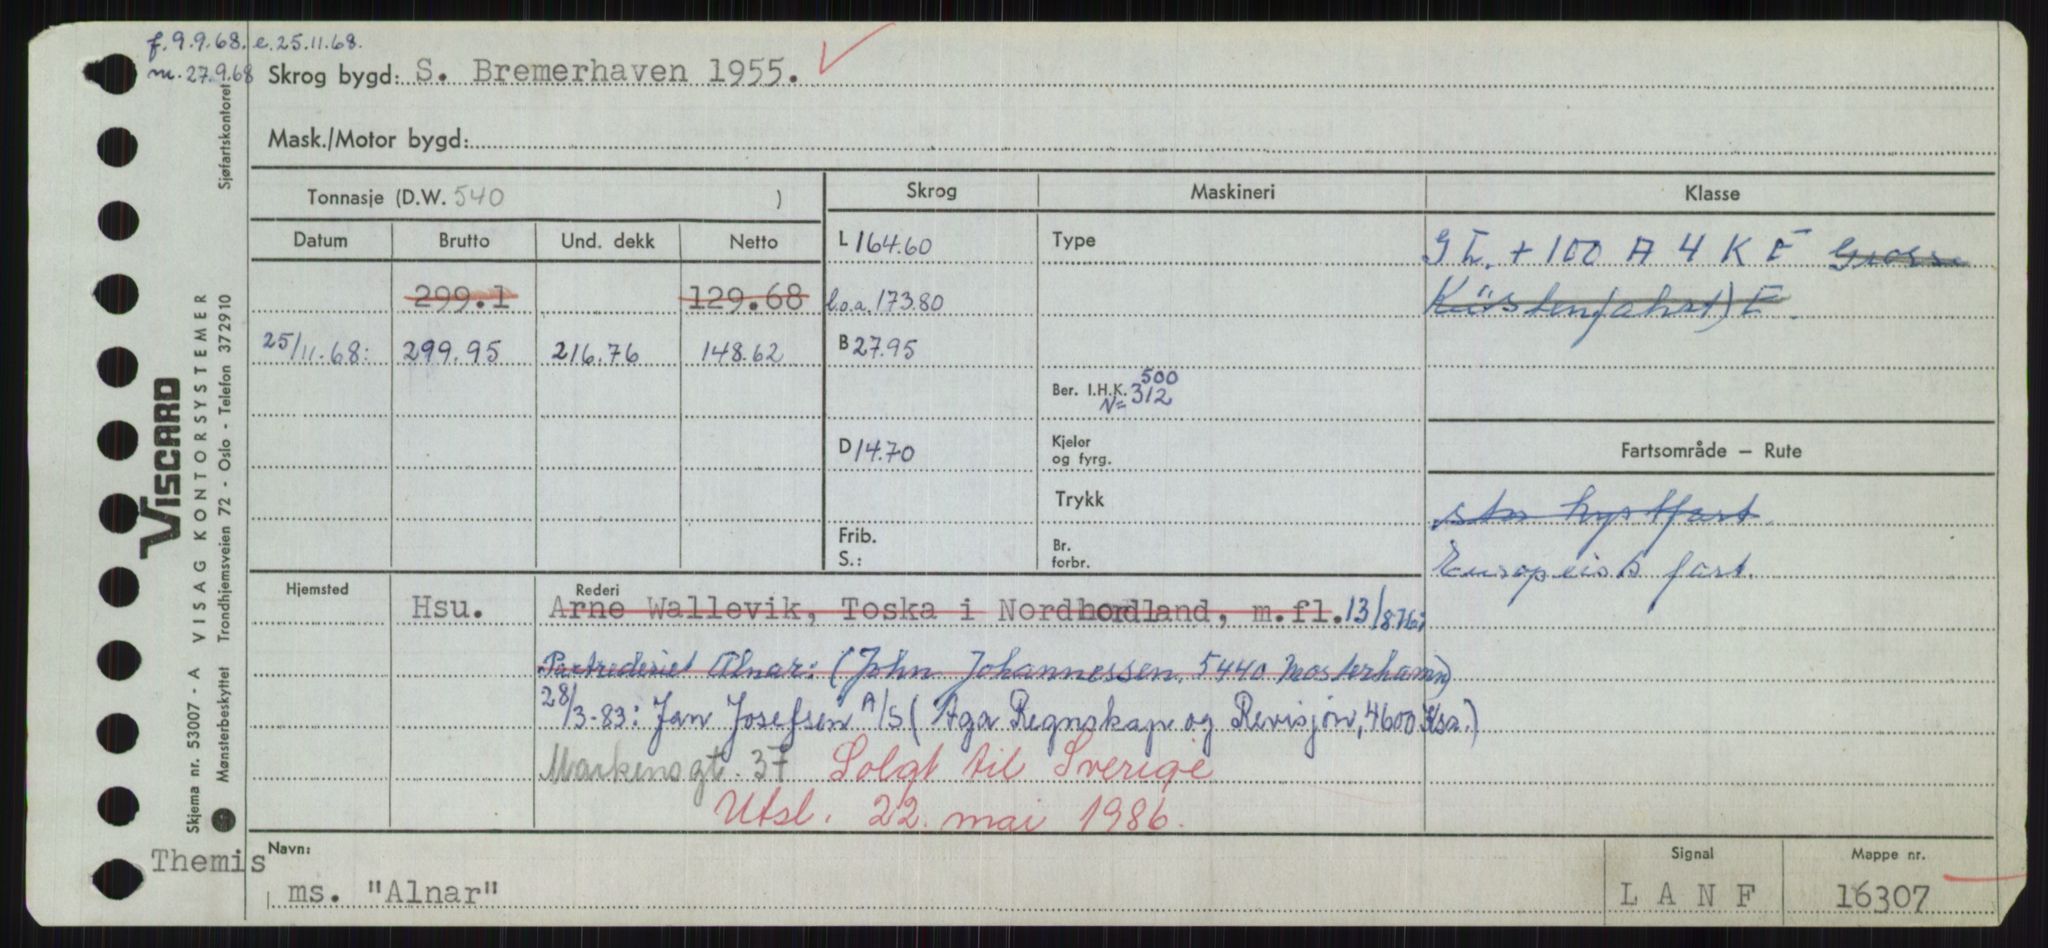 f. 9.9.68. e. 25.11.68.
m. 27.9.68
Skrog bygd: S. Bremerhaven 1955.
Mask./Motor bygd:
Sjøfartskontoret
Tonnasje (D.W. 540 )
Skrog Maskineri Klasse
Datum Brutto Und. dekk Netto
L 164.60 Type
GL. + 100 A 4 K E Grosse
299.1 129.68 l.o.a. 173.80
Küstenfahrt) E.
25/11.68: 299.95 216.76 148.62 B 27.95
Ber. I.H.K. 500
N= 312
D 14.70 Kjeler og fyrg.
Fartsområde – Rute
Trykk
stor kystfart
Frib.
S.:
Br. forbr.
Europeisk fart.
Hjemsted Rederi
Hsu. Arne Wallevik, Toska i Nordhordland, m.fl. 13/8.76:
Partrederiet Alnar: (John Johannessen, 5440 Mosterhamn)
28/3-83: Jan Josefsen A/S (Aga Regnskap og Revisjon, 4600 Krsa.)
Markensgt. 37 Solgt til Sverige
Utsl. 22. mai 1986.
Themis
Navn: Signal Mappe nr.
ms. "Alnar" L A N F 16307
VISCARD
VISAG KONTORSYSTEMER
Trondhjemsveien 72 - Oslo - Telefon 372910
Skjema nr. 53007 - A
Mønsterbeskyttet